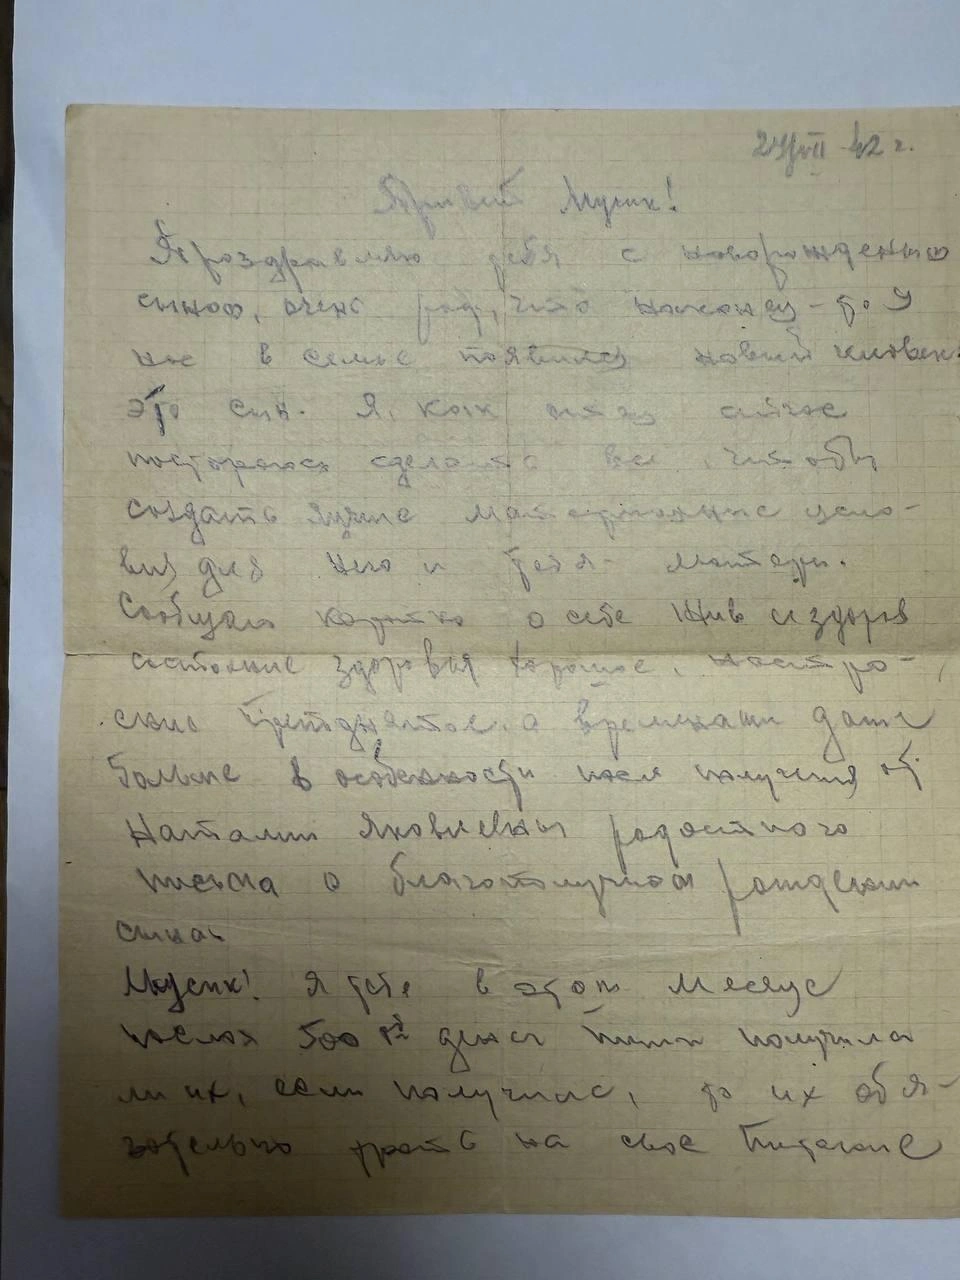 24/VII 42 г.
Привет Мусик!
Поздравляю тебя с новорожденым
сыном, очень рад, что наконец-то у
нас в семье появился новый человек
это сын. Я, как отец сейчас
постараюсь сделать все, чтобы
создать лучшие материальные усло-
вия для него и тебя - матери.
Сообщаю коротко о себе жив и здоров
состояние здоровья хорошее, настро-
ение приподнятое, а временами даже
больше в особенности после получения от
Наталии Яковлевны радостного
письма о благополучном рождении
сына.
Мусик! Я тебе в этом месяце
послал 500 р. денег пиши получила
ли их, если получила, то их обя-
зательно трать на свое питание